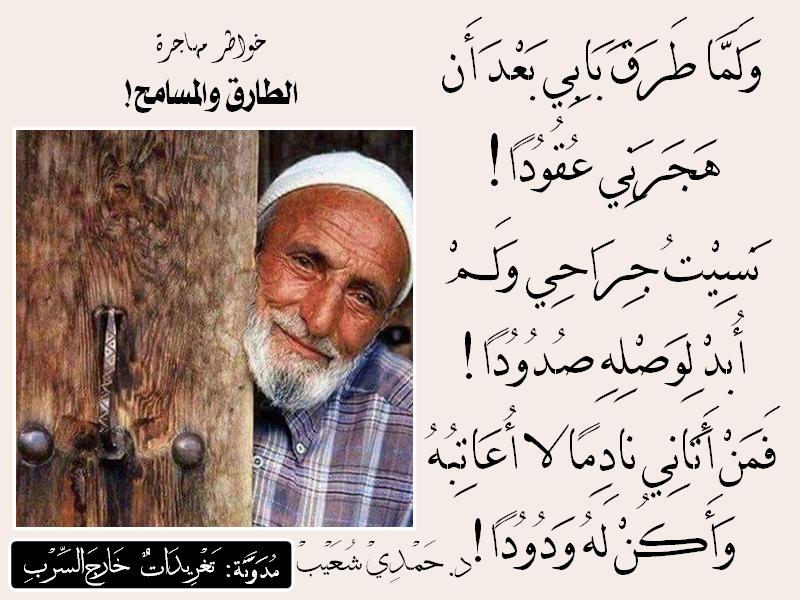 خواطر مهاجرة
الطارق والمسامح!
وَلَمَّا طَرَقَ بَابِي بَعْدَ أَن
هَجَرَنِي عُقُودًا!
نَسِيْتُ جِرَاحِي وَلَمْ
أُبدْ لِوَصْلِهِ صُدُودًا!
فَمَنْ أَتَانِي نادِمًا لا أُعَاتِبُهُ
وَأَكُنْ لَهُ وَدُودًا!
د. حَمْدِيْ شُعَيْبْ
مُدَوَّنَة: تَغْرِيدَاتٌ خَارِجَ السِّرْبِ